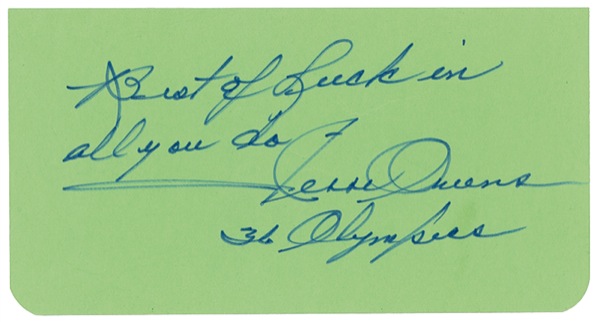 Best of Luck in
all you do -
Jesse Owens
36 Olympics